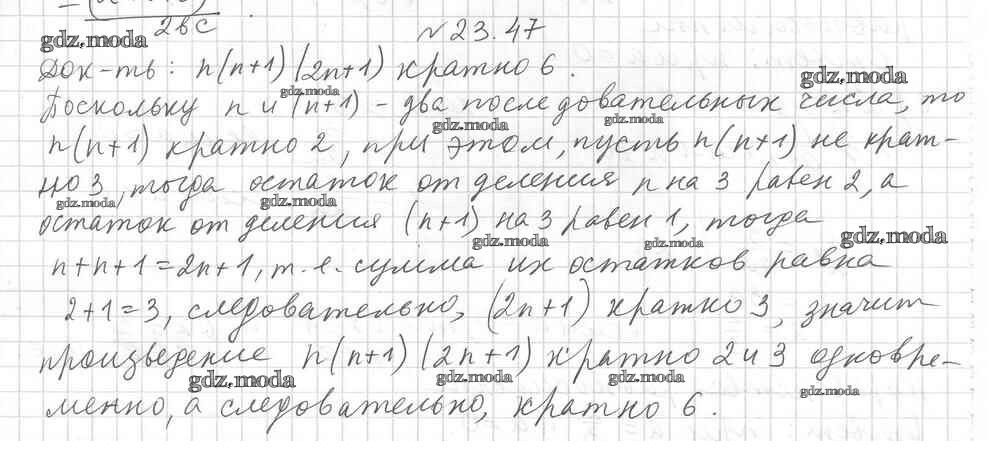 2bc
№23.47
gdz.moda
Док-ть: n(n+1)(2n+1) кратно 6.
gdz.moda
gdz.moda
Поскольку n и (n+1) - два последовательных числа, то
gdz.moda
gdz.moda
n(n+1) кратно 2, при этом, пусть n(n+1) не крат-
но 3, тогда остаток от деления n на 3 равен 2, а
gdz.moda
gdz.moda
остаток от деления (n+1) на 3 равен 1, тогда
gdz.moda
gdz.moda
gdz.moda
n+n+1=2n+1, т.е. сумма их остатков равна
2+1=3, следовательно, (2n+1) кратно 3, значит
произведение n(n+1)(2n+1) кратно 2 и 3 одновре-
gdz.moda
gdz.moda
gdz.moda
gdz.moda
менно, а следовательно, кратно 6.